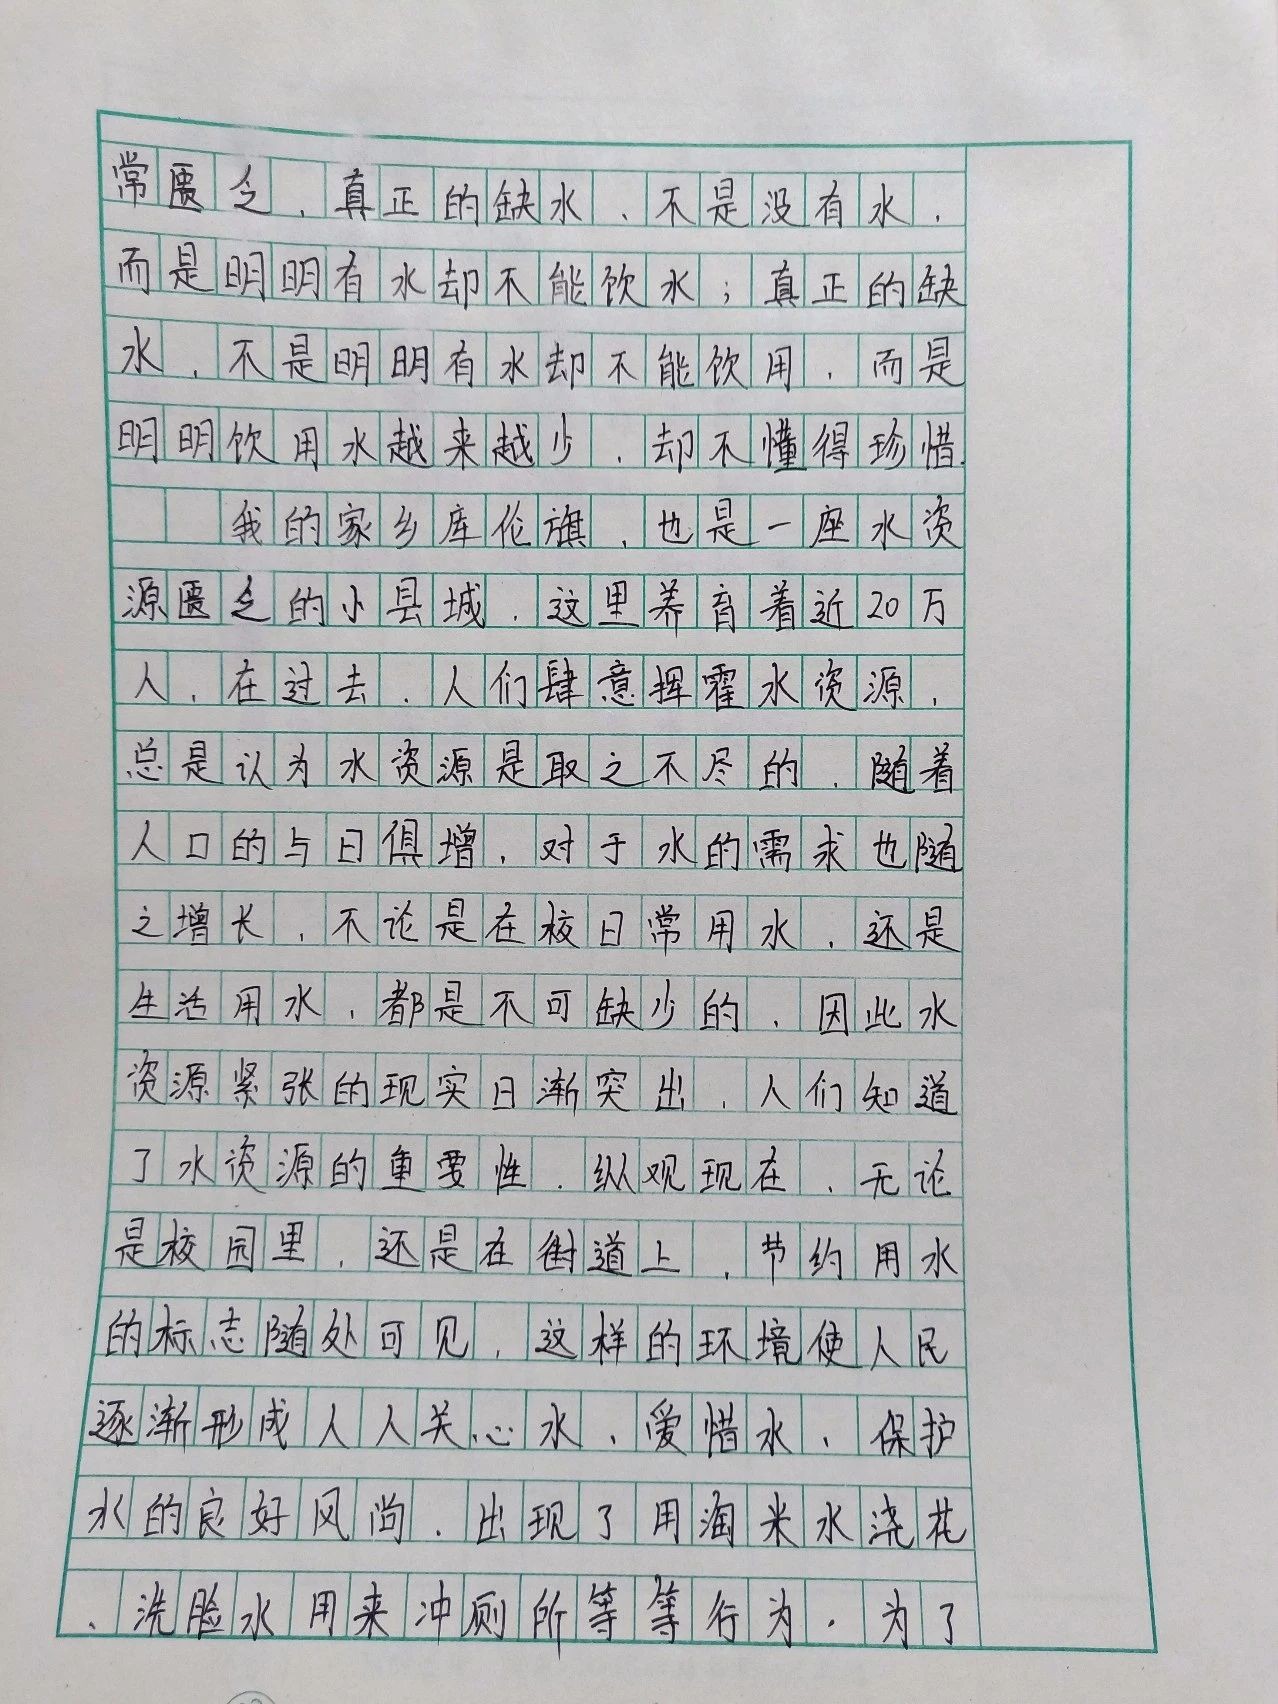 常匮乏，真正的缺水，不是没有水，
而是明明有水却不能饮水；真正的缺
水，不是明明有水却不能饮用，而是
明明饮用水越来越少，却不懂得珍惜.
我的家乡库伦旗，也是一座水资
源匮乏的小县城．这里养育着近20万
人，在过去．人们肆意挥霍水资源，
总是认为水资源是取之不尽的．随着
人口的与日俱增，对于水的需求也随
之增长，不论是在校日常用水，还是
生活用水，都是不可缺少的，因此水
资源紧张的现实日渐突出，人们知道
了水资源的重要性．纵观现在，无论
是校园里，还是在街道上，节约用水
的标志随处可见，这样的环境使人民
逐渐形成人人关心水、爱惜水、保护
水的良好风尚．出现了用淘米水浇花
、洗脸水用来冲厕所等等行为．为了